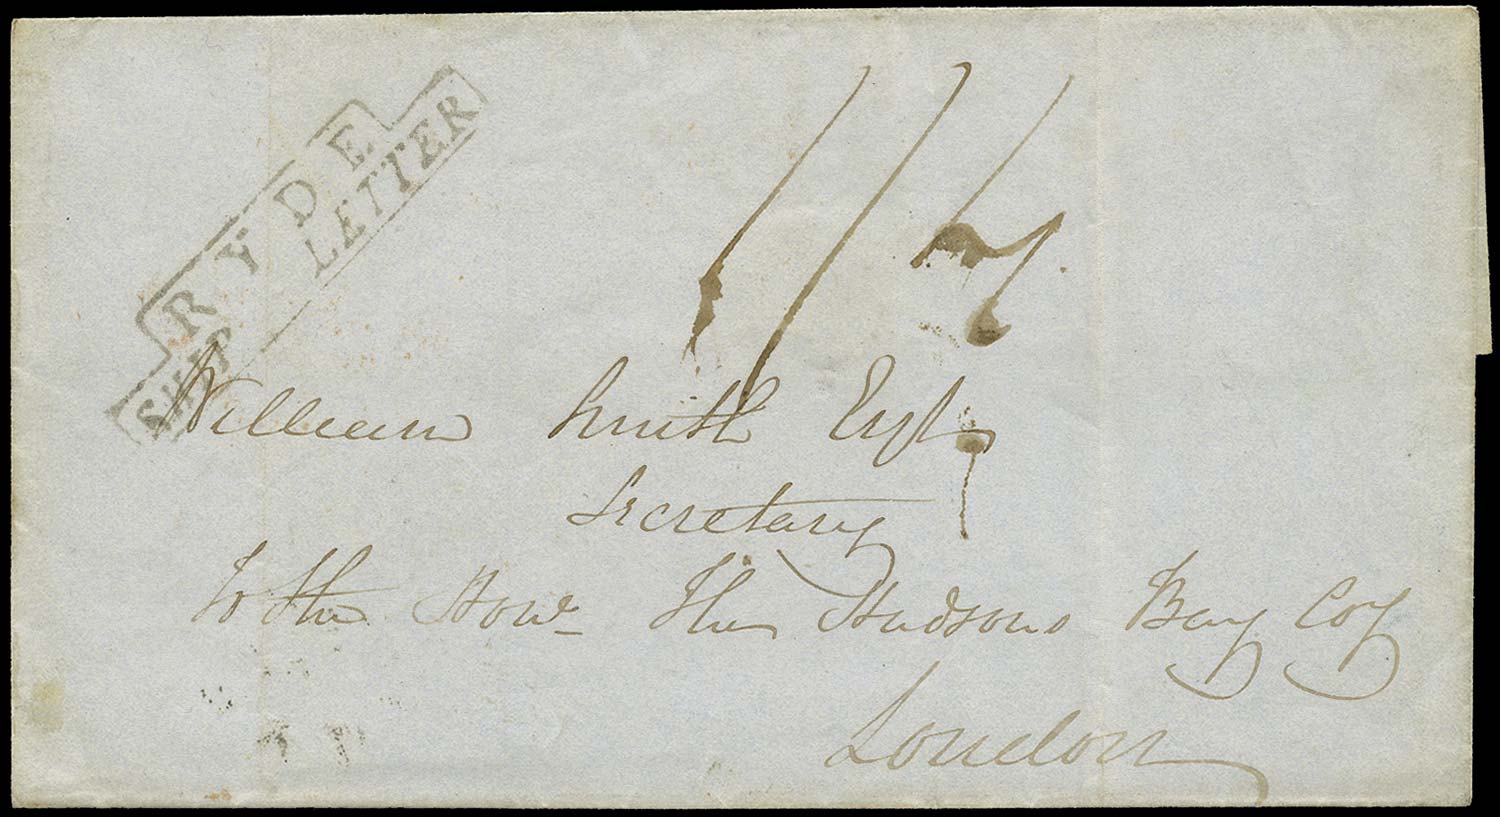 RYDE
SHIP LETTER
William Smith Esqr
Secretary
To the Hone The Hudsons Bay Coy
London